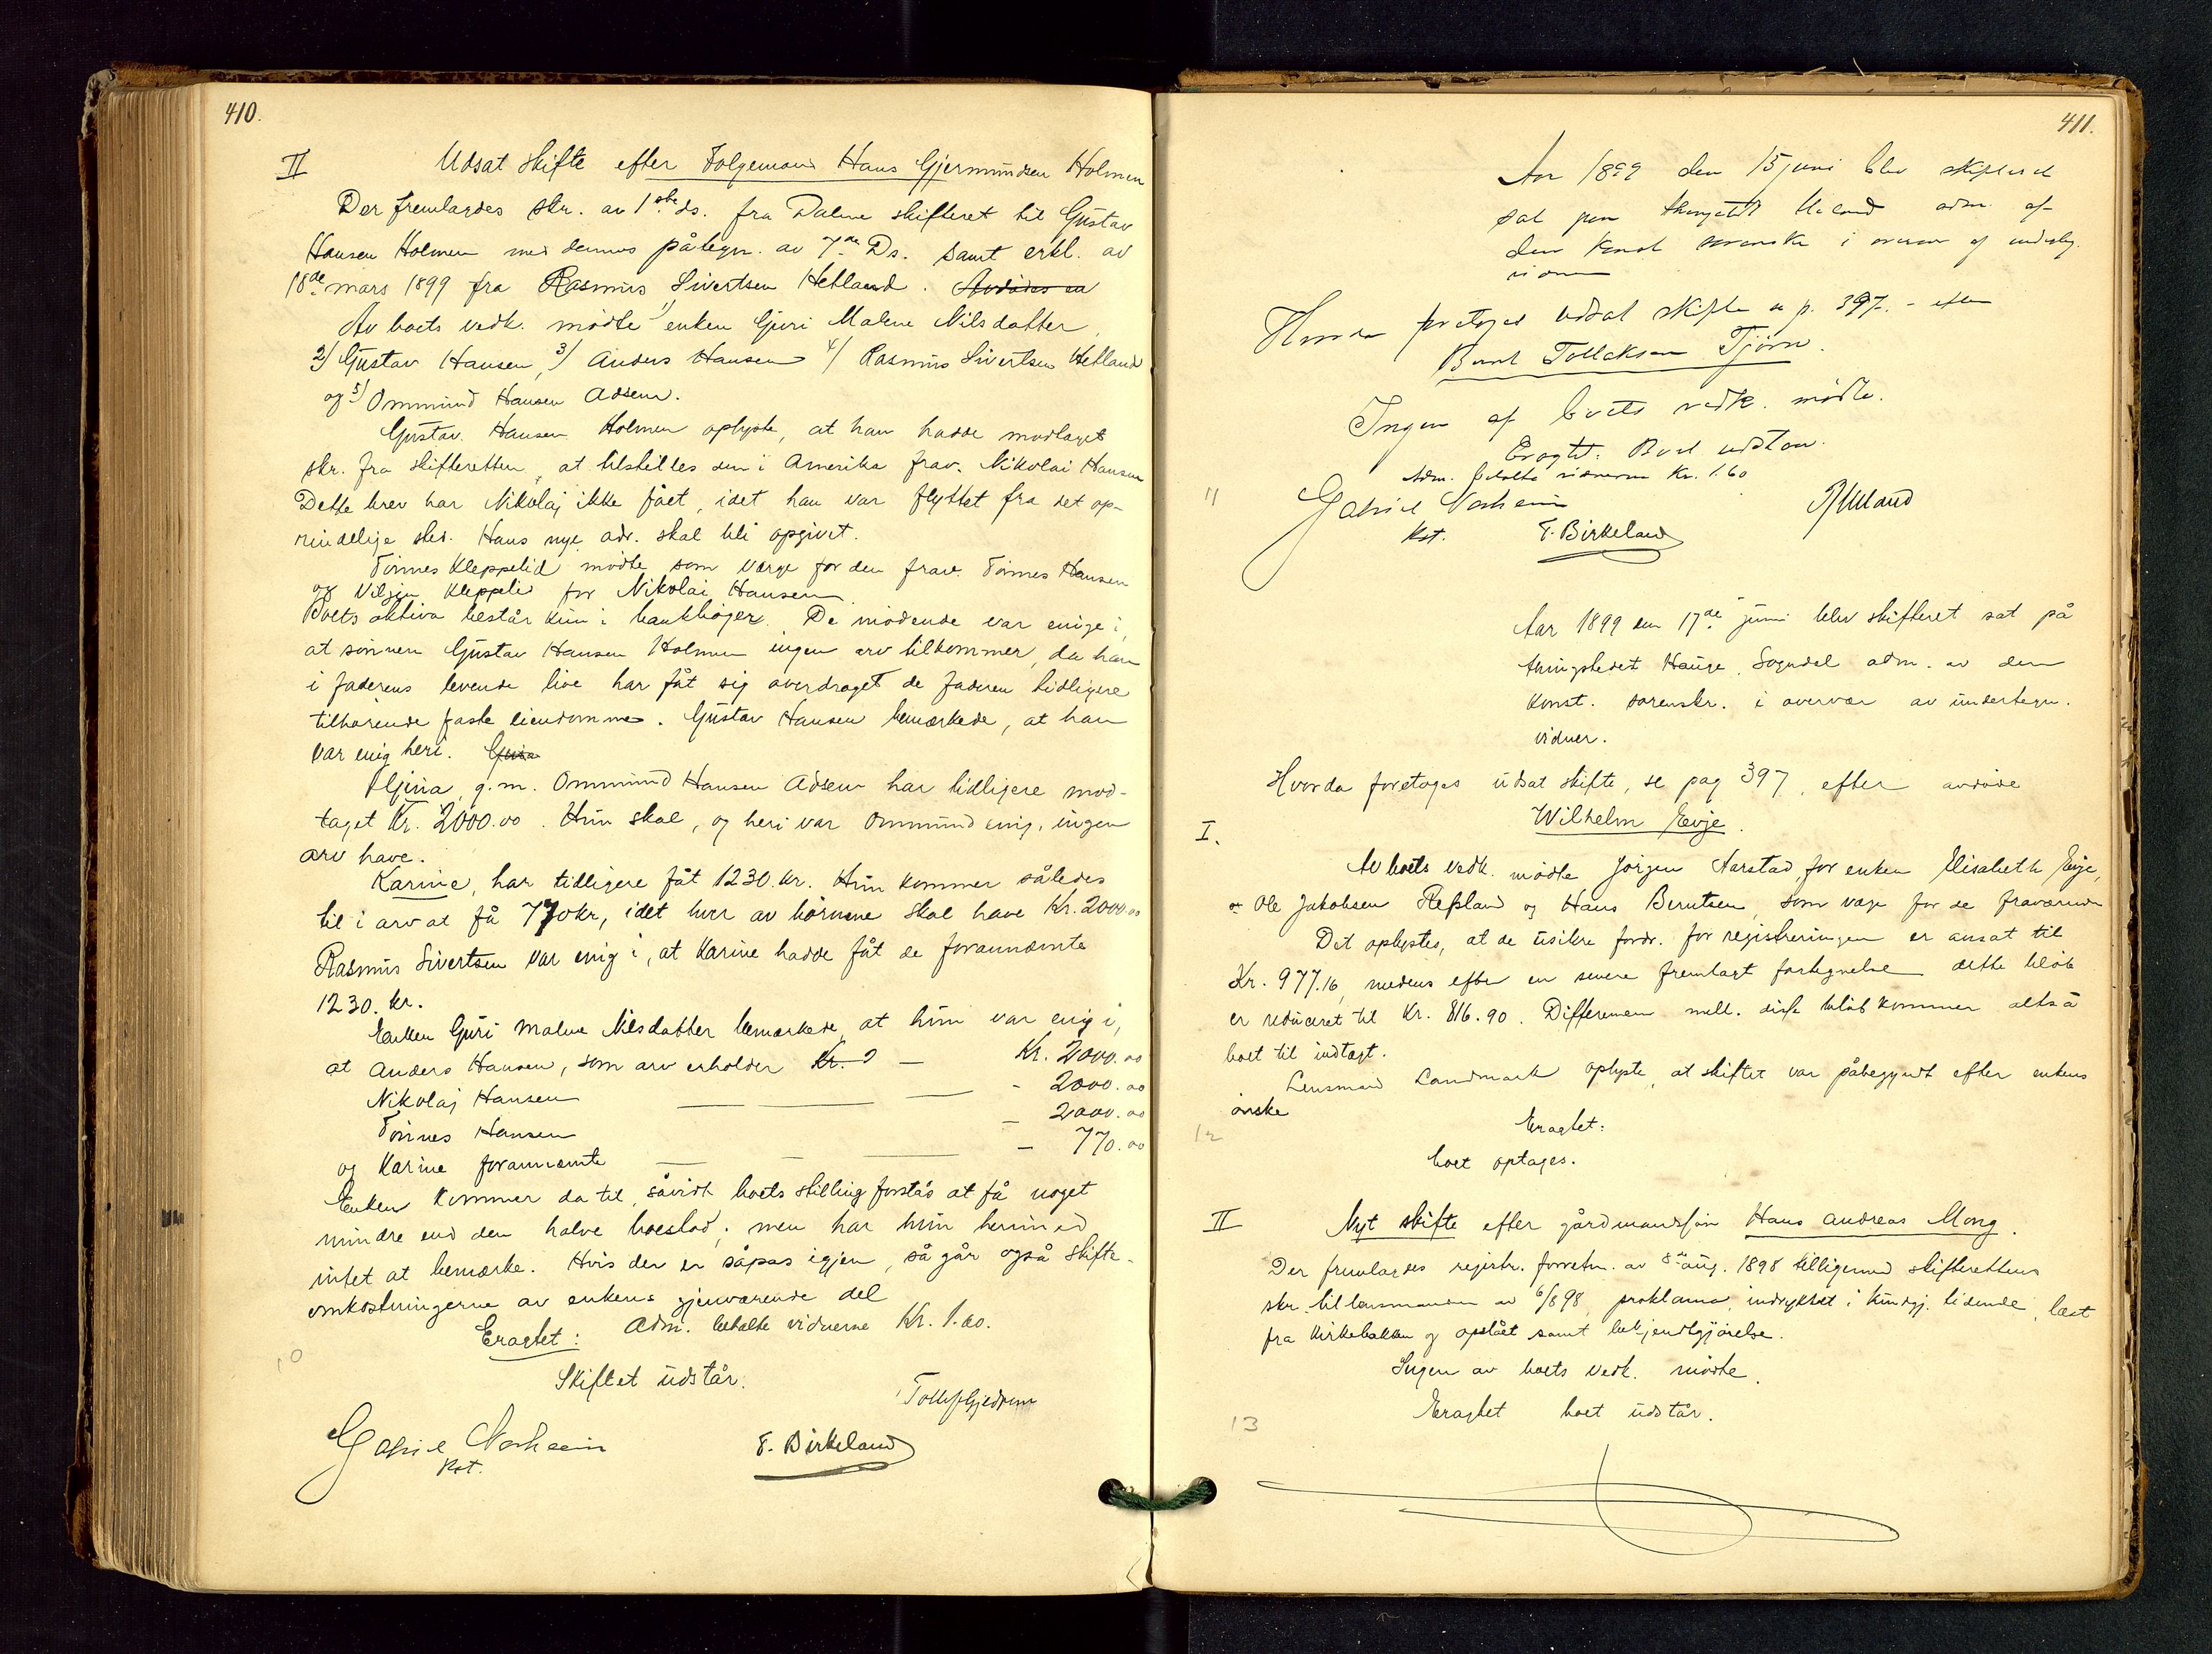 410.
II Udsat skifte efter Folgemand Hans Gjermundsen Holmen
Der fremlagdes skr. av 1ste ds. fra Dalene skifteret til Gustav
Hansen Holmen med dennes påtegn. av 7de Ds. samt erkl. av
18de mars 1899 fra Rasmus Sivertsen Hetland. Avdødes en
Av boets vedk. mødte 1) enken Guri Malene Nilsdatter,
2) Gustav Hansen, 3) Anders Hansen 4) Rasmus Sivertsen Hetland
og 5) Ommund Hansen Adsem.
Gustav Hansen Holmen oplyste, at han hadde modtaget
skr. fra skifteretten, at tilstilles den i Amerika frav. Nikolai Hansen
Dette brev har Nikolaj ikke fået, idet han var flyttet fra det op-
rindelige sted. Hans nye adr. skal bli opgivet.
Tønnes Kleppelid mødte som værge for den frav. Tønnes Hansen
og Kleppelid for Nikolai Hansen.
Boets aktiva består kun i bankbøger. De mødende var enige i,
at sønnen Gustav Hansen Holmen ingen arv tilkommer, da han
i faderens levende live har fåt sig overdraget de faderen tidligere
tilhørende faste eiendomme. Gustav Hansen bemærkede, at han
var enig heri. Guri
g.m. Ommund Hansen Adsem har tidligere mod-
taget Kr. 2000.00. Hun skal, og heri var Ommund enig, ingen
arv have.
Karine, har tidligere fåt 1230. kr. Hun kommer således
til i arv at få 770 kr, idet hver av børnene skal have Kr. 2000.00
Rasmus Sivertsen var enig i, at Karine hadde fåt de forannævnte
1230. kr.
Enken Guri Malene Nilsdatter bemærkede, at hun var enig i,
at Anders Hansen, som arv erholder Kr. 2 — Kr. 2000.00
Nikolaj Hansen — — — - 2000.00
Tønnes Hansen — 2000.00
og Karine forannævnte — — — — 770.00
Enken kommer da til, såvidt boets stilling forstås at få noget
mindre end den halve boeslod; men har hun herimod
intet at bemærke. Hvis der er såpas igjen, så går også skifte-
omkostningerne av enkens gjenværende del
Eragtet: Adm. betalte vidnerne Kr. 1.60.
10
Skiftet udstår.
Gabriel Norheim
Kst.
F. Birkeland
411.
Aar 1899 den 15 juni blev skifteret
sat paa adm. af
den konst sorenskr i overvær af undertegn.
vidner
Hvorda foretages udsat skifte se p. 397. - efter
Bernt Tollaksen Tjørn.
Ingen af boets vedk. mødte.
Eragt: Boet udstaar.
Adm. betalte vidnerne Kr. 1.60
11
Gabriel Norheim
Kst. F. Birkeland
Aar 1899 den 17de juni blev skifteret sat på
thingstedet Hauge, Sogndal adm. av den
konst. sorenskr. i overvær av undertegn.
vidner.
Hvorda foretages udsat skifte, se pag 397, efter avdøde
I. Wilhelm Evje.
Av boets vedk. mødte Jørgen Aarstad, for enken Elisabeth Evje,
Ole Jakobsen Refsland og Hans Berntsen, som værge for de fraværende
Det oplystes, at de usikre fordr. for registreringen er ansat til
Kr. 977.16, medens efter en senere fremlagt fortegnelse dette beløb
er reduceret til Kr. 816.90. Differensen mell. disse beløb kommer altså
boet til indtægt.
Lensmand Landmark oplyste, at skiftet var påbegyndt efter enkens
ønske
12
Eragtet:
boet optages.
II Nyt skifte efter gårdmandssøn Hans Andreas Mong.
Der fremlagdes registr. forretn. av 8de aug. 1898 tilligemed skifterettens
skr. til lensmanden av 6/8 98, proklama, indrykket i Kundgj. tidende, læst
fra Kirkebakken og opslået samt bekjendtgjørelse.
Ingen av boets vedk. mødte.
13
Eragtet boet udstår.